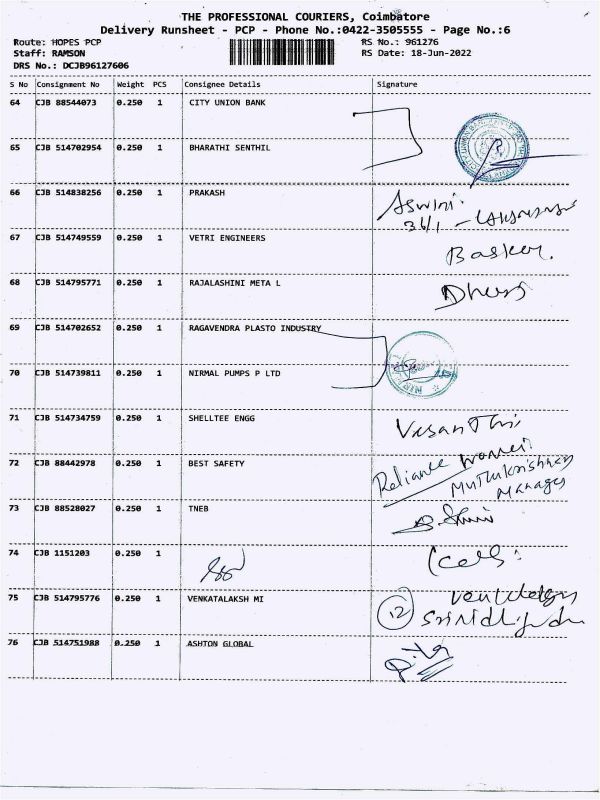 THE PROFESSIONAL COURIERS, Coimbatore
Delivery Runsheet - PCP - Phone No.:0422-3505555 - Page No.:6
Route: HOPES PCP RS No.: 961276
Staff: RAMSON RS Date: 18-Jun-2022
DRS No.: DCJB96127606
S No Consignment No Weight PCS Consignee Details Signature
64 CJB 88544073 0.250 1 CITY UNION BANK
65 CJB 514702954 0.250 1 BHARATHI SENTHIL
66 CJB 514838256 0.250 1 PRAKASH Aswini
36/1
67 CJB 514749559 0.250 1 VETRI ENGINEERS Basker.
68 CJB 514795771 0.250 1 RAJALASHINI META L
69 CJB 514702652 0.250 1 RAGAVENDRA PLASTO INDUSTRY
70 CJB 514739811 0.250 1 NIRMAL PUMPS P LTD
71 CJB 514734759 0.250 1 SHELLTEE ENGG Vasanthi
72 CJB 88442978 0.250 1 BEST SAFETY Reliance
Muthukrishnan
Manager
73 CJB 88528027 0.250 1 TNEB
74 CJB 1151203 0.250 1
75 CJB 514795776 0.250 1 VENKATALAKSH MI 12
76 CJB 514751988 0.250 1 ASHTON GLOBAL